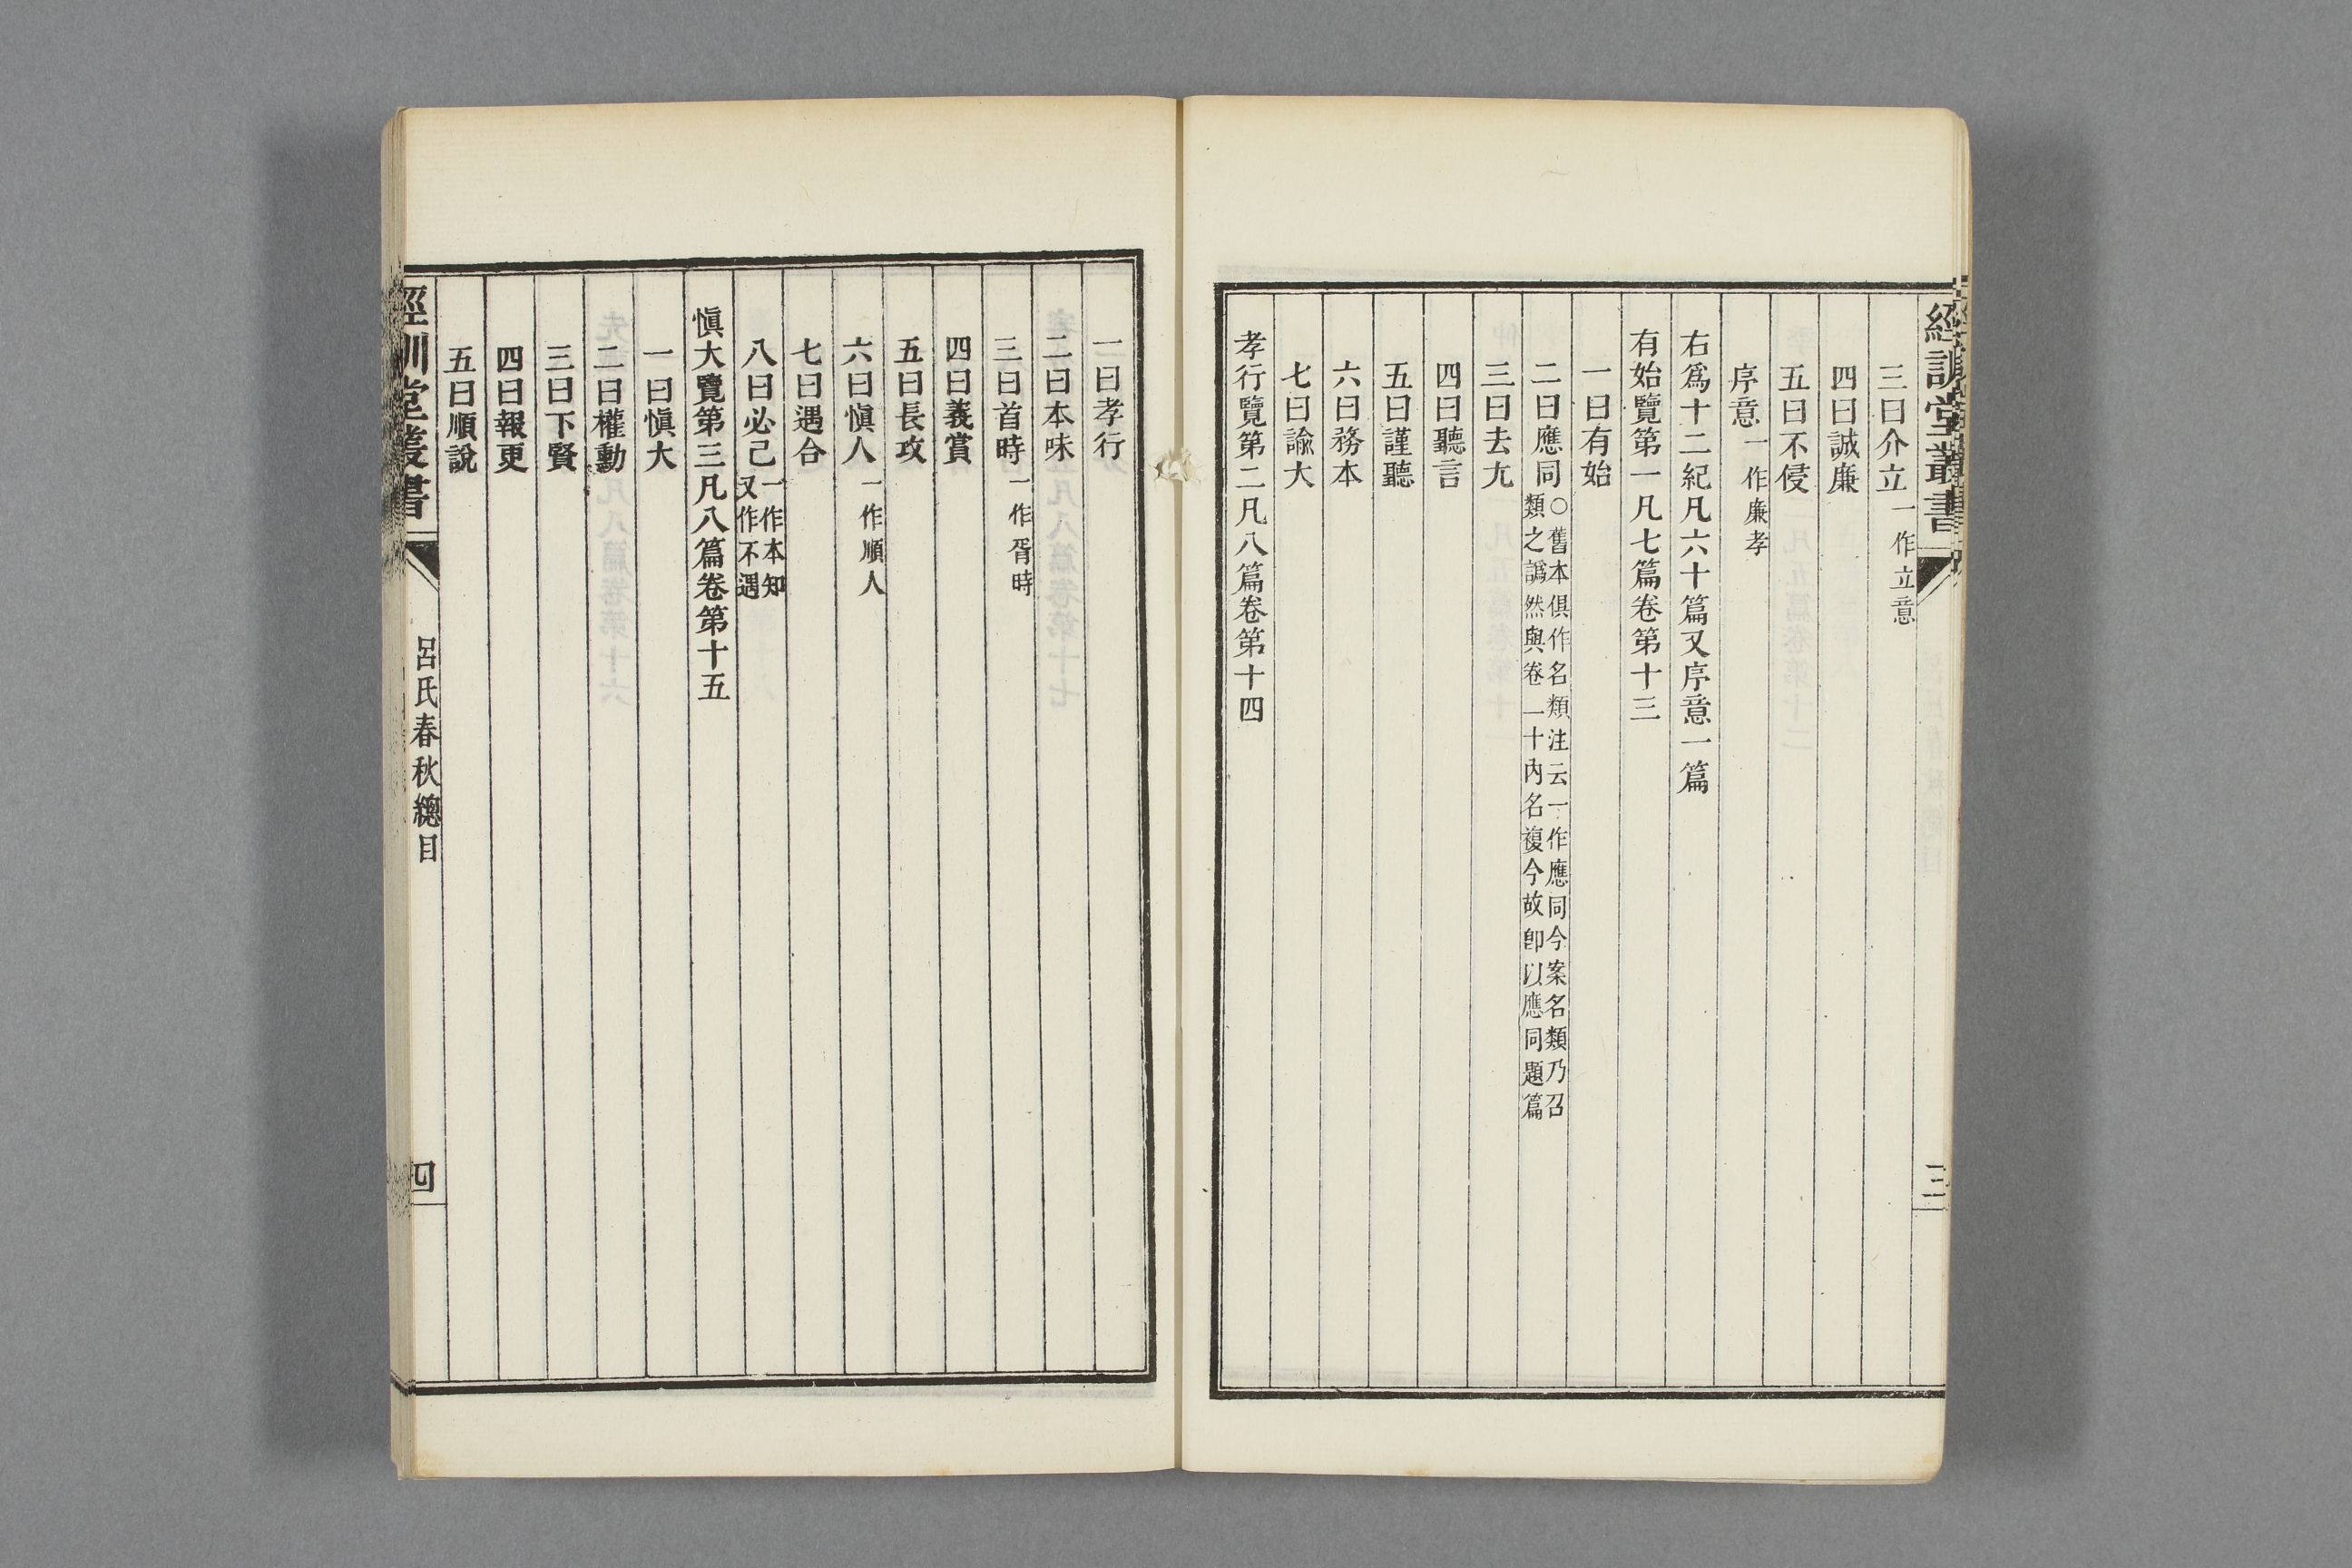 經訓堂叢書
三
三曰介立一作立意
四曰誠廉
五曰不侵
序意一作廉孝
右爲十二紀凡六十篇又序意一篇
有始覽第一凡七篇卷第十三
一曰有始
二曰應同○舊本俱作名類注云一作應同今案名類乃召
類之譌然與卷二十內名複今故卽以應同題篇
三曰去尤
四曰聽言
五曰謹聽
六曰務本
七曰諭大
孝行覽第二凡八篇卷第十四
一曰孝行
二曰本味
三曰首時一作胥時
四曰義賞
五曰長攻
六曰愼人一作順人
七曰遇合
八曰必己一作本知
又作不遇
愼大覽第三凡八篇卷第十五
一曰愼大
二曰權勳
三曰下賢
四曰報更
五曰順說
經訓堂叢書
呂氏春秋總目
四